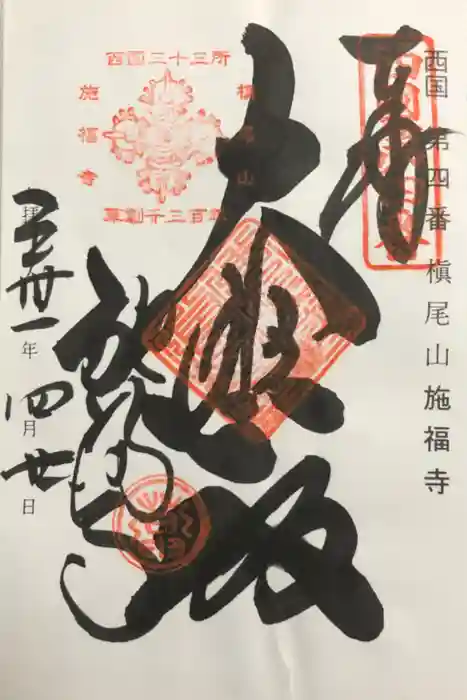 西国 第四番 槇尾山 施福寺
奉
西国三十三所
槇尾山
施福寺
草創千三百年
大悲殿
施福寺
拝
平卅一年四月廿日